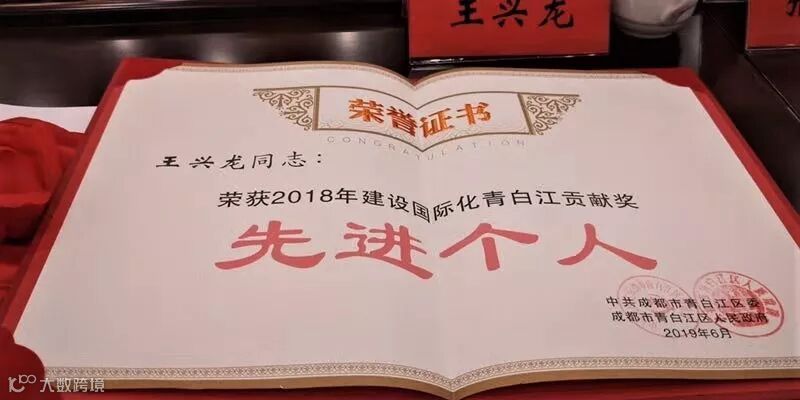 王兴龙
荣誉证书
CONGRATULATION
王兴龙同志：
荣获2018年建设国际化青白江贡献奖
先进个人
中共成都市青白江区委
成都市青白江区人民政府
2019年6月
大数跨境